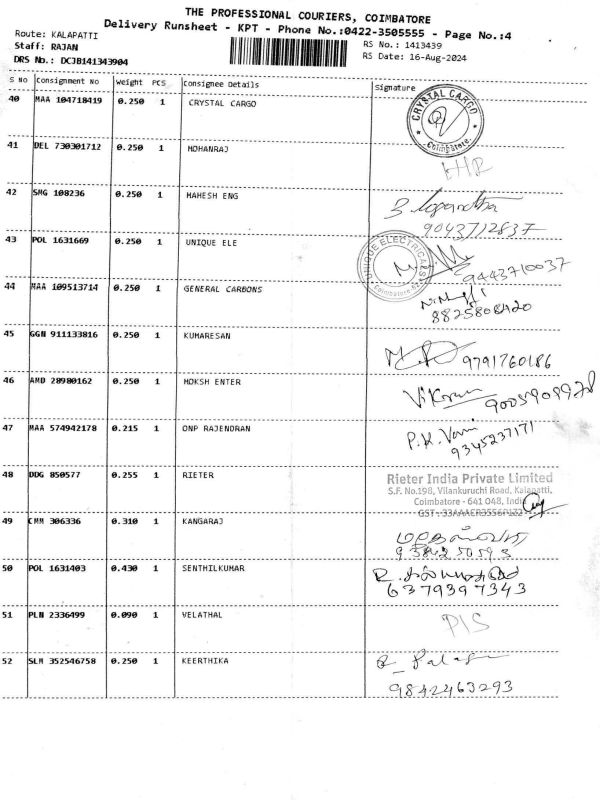 THE PROFESSIONAL COURIERS, COIMBATORE
Delivery Runsheet - KPT - Phone No.:0422-3505555 - Page No.:4
Route: KALAPATTI
Staff: RAJAN
DRS No.: DCJB141343904
RS No.: 1413439
RS Date: 16-Aug-2024
S No Consignment No Weight PCS Consignee Details Signature
40 MAA 104718419 0.250 1 CRYSTAL CARGO
CRYSTAL CARGO
Coimbatore
41 DEL 730301712 0.250 1 MOHANRAJ
42 SMG 108236 0.250 1 MAHESH ENG
9043712837
43 POL 1631669 0.250 1 UNIQUE ELE
UNIQUE ELECTRICALS
9443710037
44 MAA 109513714 0.250 1 GENERAL CARBONS
8825808420
45 GGN 911133816 0.250 1 KUMARESAN
9791760186
46 AMD 28980162 0.250 1 MOKSH ENTER
Vikram
47 MAA 574942178 0.215 1 ONP RAJENDRAN
9345237171
48 DDG 850577 0.255 1 RIETER
Rieter India Private Limited
S.F. No.198, Vilankuruchi Road, Kalapatti,
Coimbatore - 641 048, India
49 CMM 306336 0.310 1 KANGARAJ
50 POL 1631403 0.430 1 SENTHILKUMAR
6379397343
51 PLN 2336499 0.090 1 VELATHAL
52 SLM 352546758 0.250 1 KEERTHIKA
9842463293